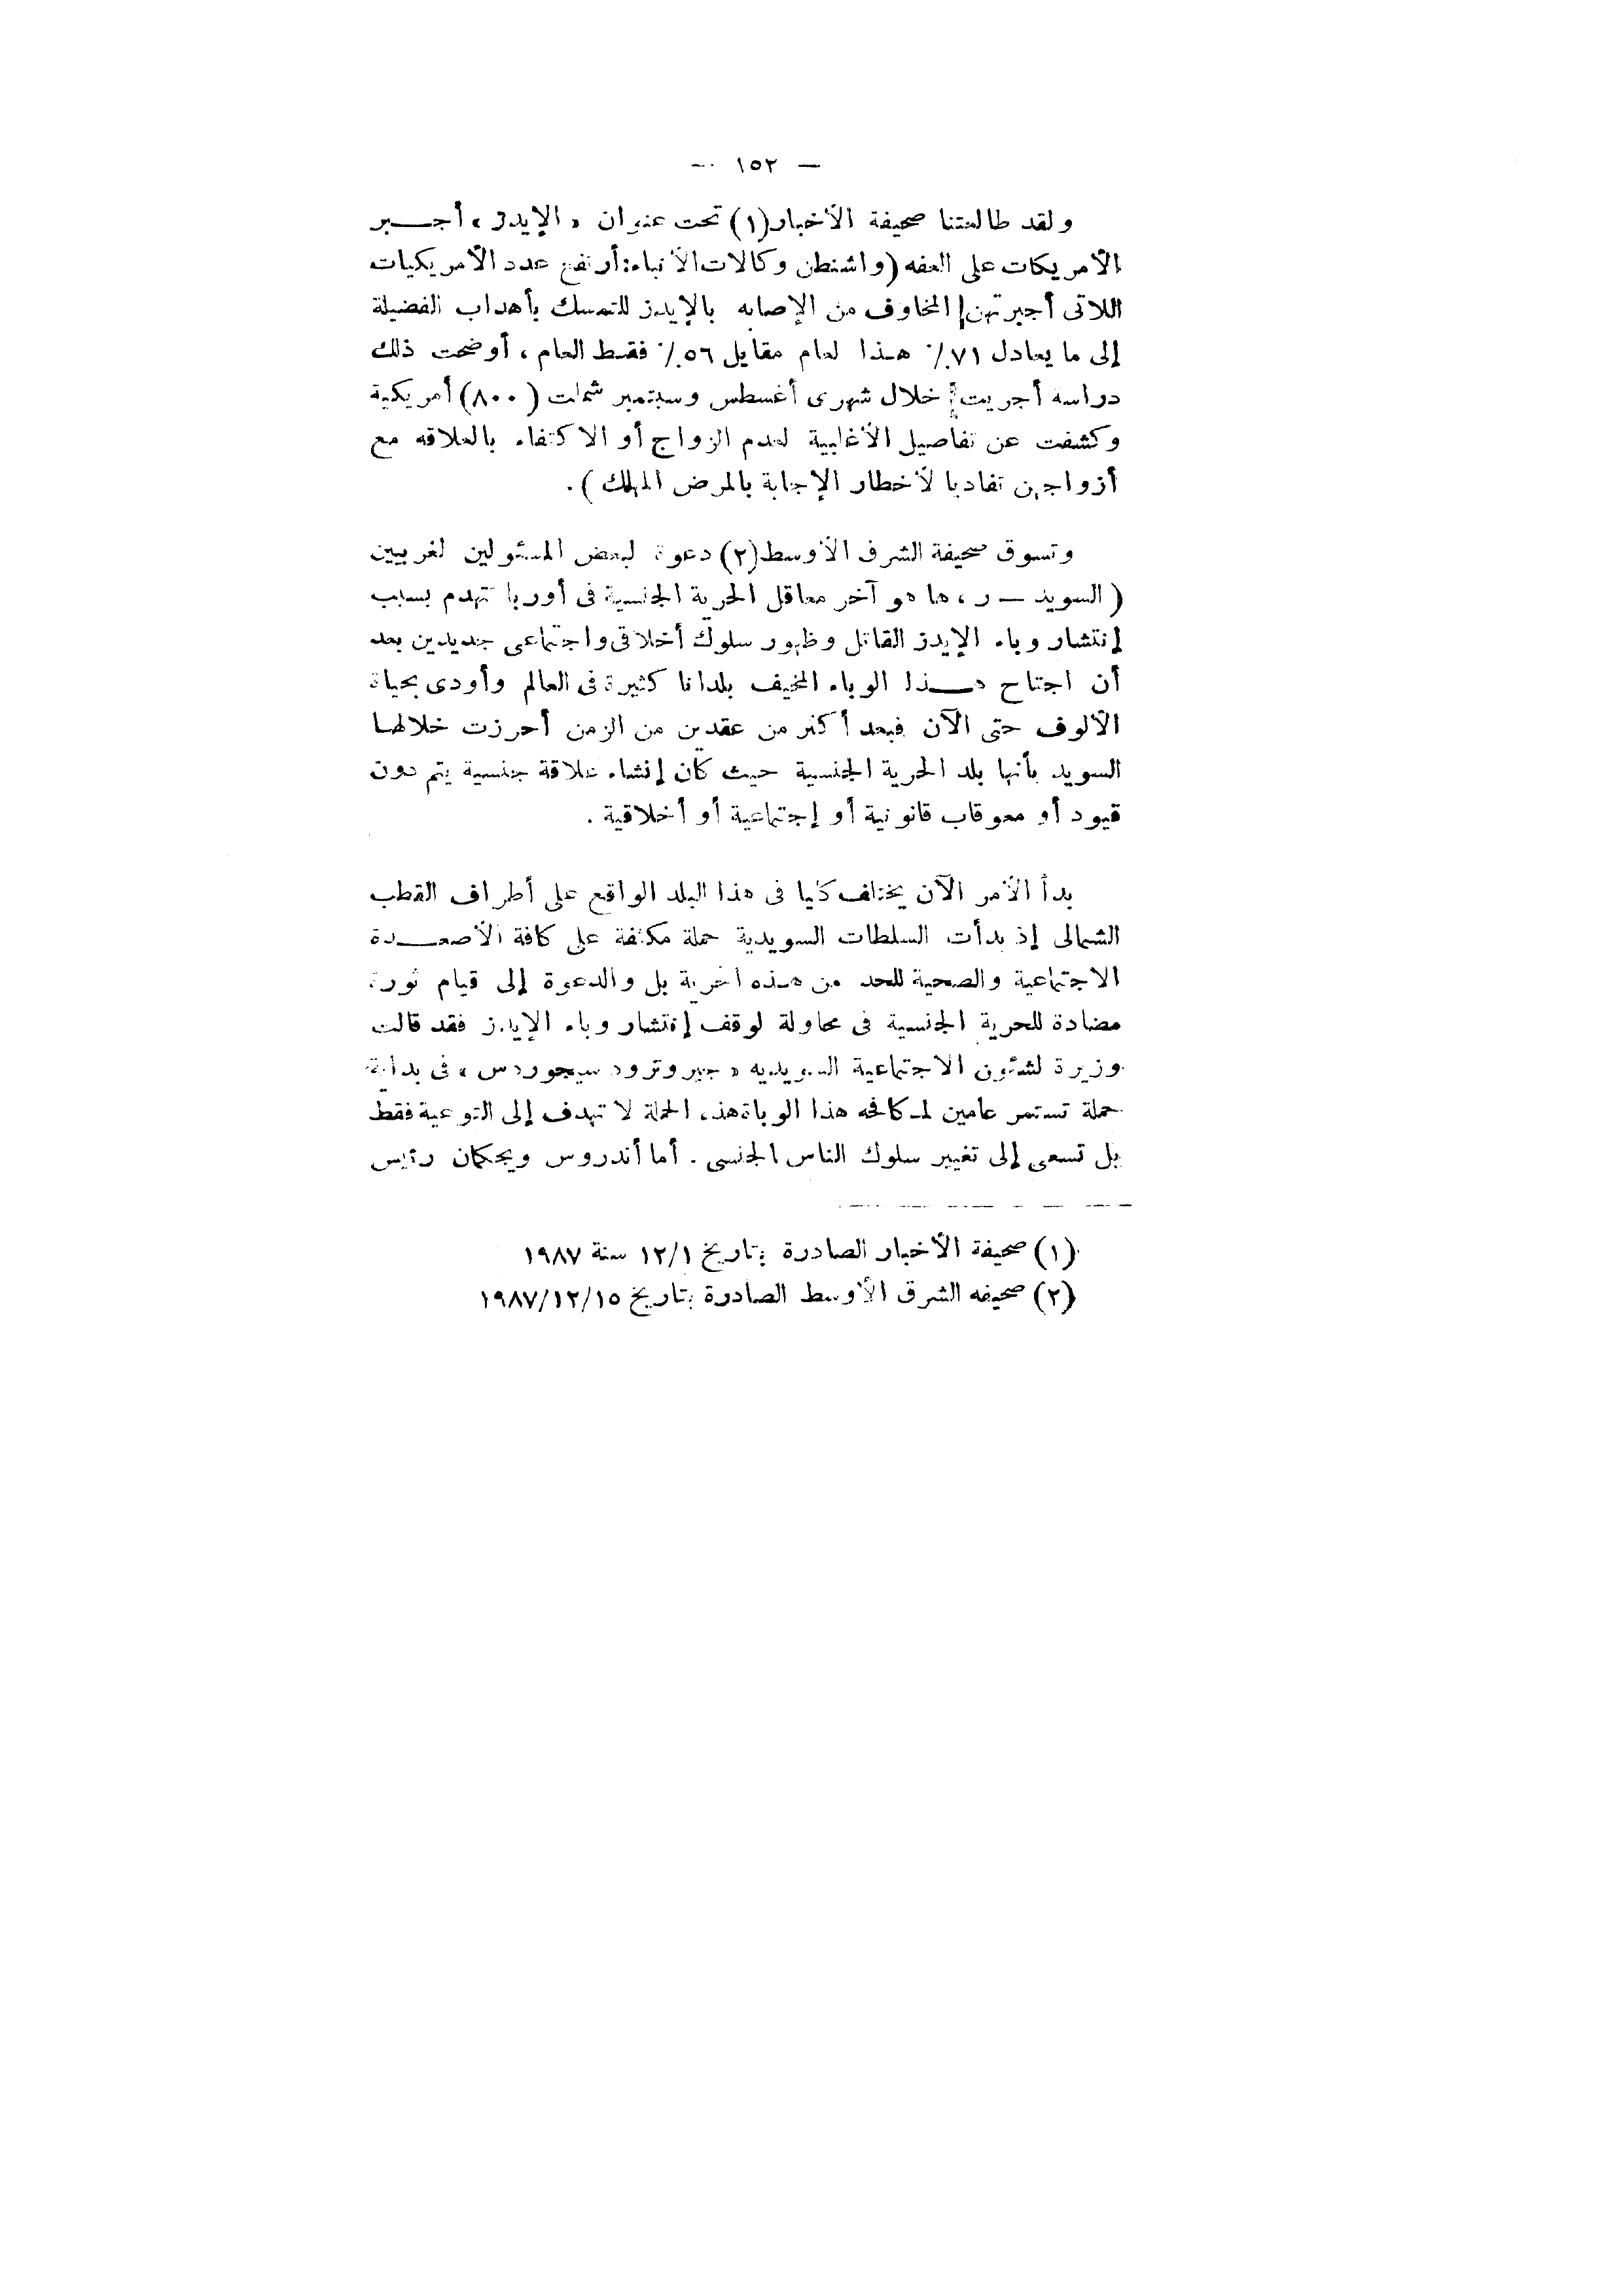 — ١٥٢ —
ولقد طالعتنا صحيفة الأخبار(١) تحت عنوان «الإيدز» أجبر
الأمريكات على العفه (واشنطن وكالات الأنباء: أرتفع عدد الأمريكيات
اللاتى أجبرتهن المخاوف من الإصابه بالإيدز للتمسك بأهداب الفضيلة
إلى ما يعادل ٧١٪ هذا لعام مقابل ٥٦٪ فقط العام، أوضحت ذلك
دراسة أجريت خلال شهرى أغسطس وسبتمبر شملت (٨٠٠) أمريكية
وكشفت عن تفاصيل الأغلبية لعدم الزواج أو الاكتفاء بالعلاقه مع
أزواجهن تفاديا لأخطار الإجابة بالمرض المهلك).
وتسوق صحيفة الشرف الأوسط(٢) دعوة لبعض المسئولين لغربيين
(السويد — ر، ها هو آخر معاقل الحرية الجنسية فى أوربا تتهدم بسبب
إنتشار وباء الإيدز القاتل وظهور سلوك أخلاقى واجتماعى جديدين بعد
أن اجتاح هذا الوباء المخيف بلدانا كثيرة فى العالم وأودى بحياة
الألوف حتى الآن فبعد أكثر من عقدين من الزمن أحرزت خلالها
السويد بأنها بلد الحرية الجنسية حيث كان إنشاء علاقة جنسية يتم دون
قيود أو معوقاب قانونية أو إجتماعية أو أخلاقية.
بدأ الأمر الآن يختلف كليا فى هذا البلد الواقع على أطراف القطب
الشمالى إذ بدأت السلطات السويدية حملة مكثفة على كافة الأصعدة
الاجتماعية والصحية للحد من هذه الحرية بل والدعوة إلى قيام ثورة
مضادة للحرية الجنسية فى محاولة لوقف إنتشار وباء الإيدز فقد قالت
وزيرة لشئون الاجتماعية السويديه «جيروترود سيجوردس» فى بداية
حملة تستمر عامين لمكافحه هذا الوباء هذه الحملة لا تهدف إلى التوعية فقط
بل تسعى إلى تغيير سلوك الناس الجنسى. أما أندروس ويجكمان رئيس
(١) صحيفة الأخبار الصادرة بتاريخ ١٢/١ سنة ١٩٨٧
(٢) صحيفه الشرق الأوسط الصادرة بتاريخ ١٩٨٧/١٢/١٥